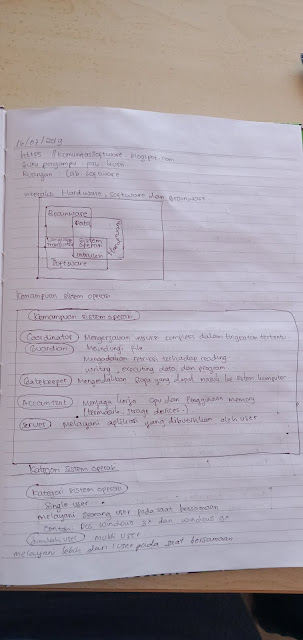 16/07/2019
https //komunitassoftware.blogspot.com
Guru pengampu
Ruangan Lab Software
Integrasi Hardware, Software dan Brainware
Brainware
Data
Hardware
Sistem
operasi
Intruksi
Software
Kemampuan sistem operasi
Kemampuan sistem operasi
Coordinator Mengerjakan complex dalam tingkatan tertentu
Guardian Melindungi file
Mengadakan terhadap reading
writing, executing data dan program
Gatekeeper Mengendalikan siapa yang dapat masuk ke sistem komputer
Accountant Menjaga kerja cpu dan Penggunaan memory
(termasuk storage devices)
Server Melayani aplikasi yang dibutuhkan oleh user
Kategori Sistem operasi
Kategori sistem operasi
Single user
Melayani seorang user pada saat bersamaan
Contoh: Dos Windows 3x dan windows 9x
Jumlah user Multi user
melayani lebih dari 1 user pada saat bersamaan